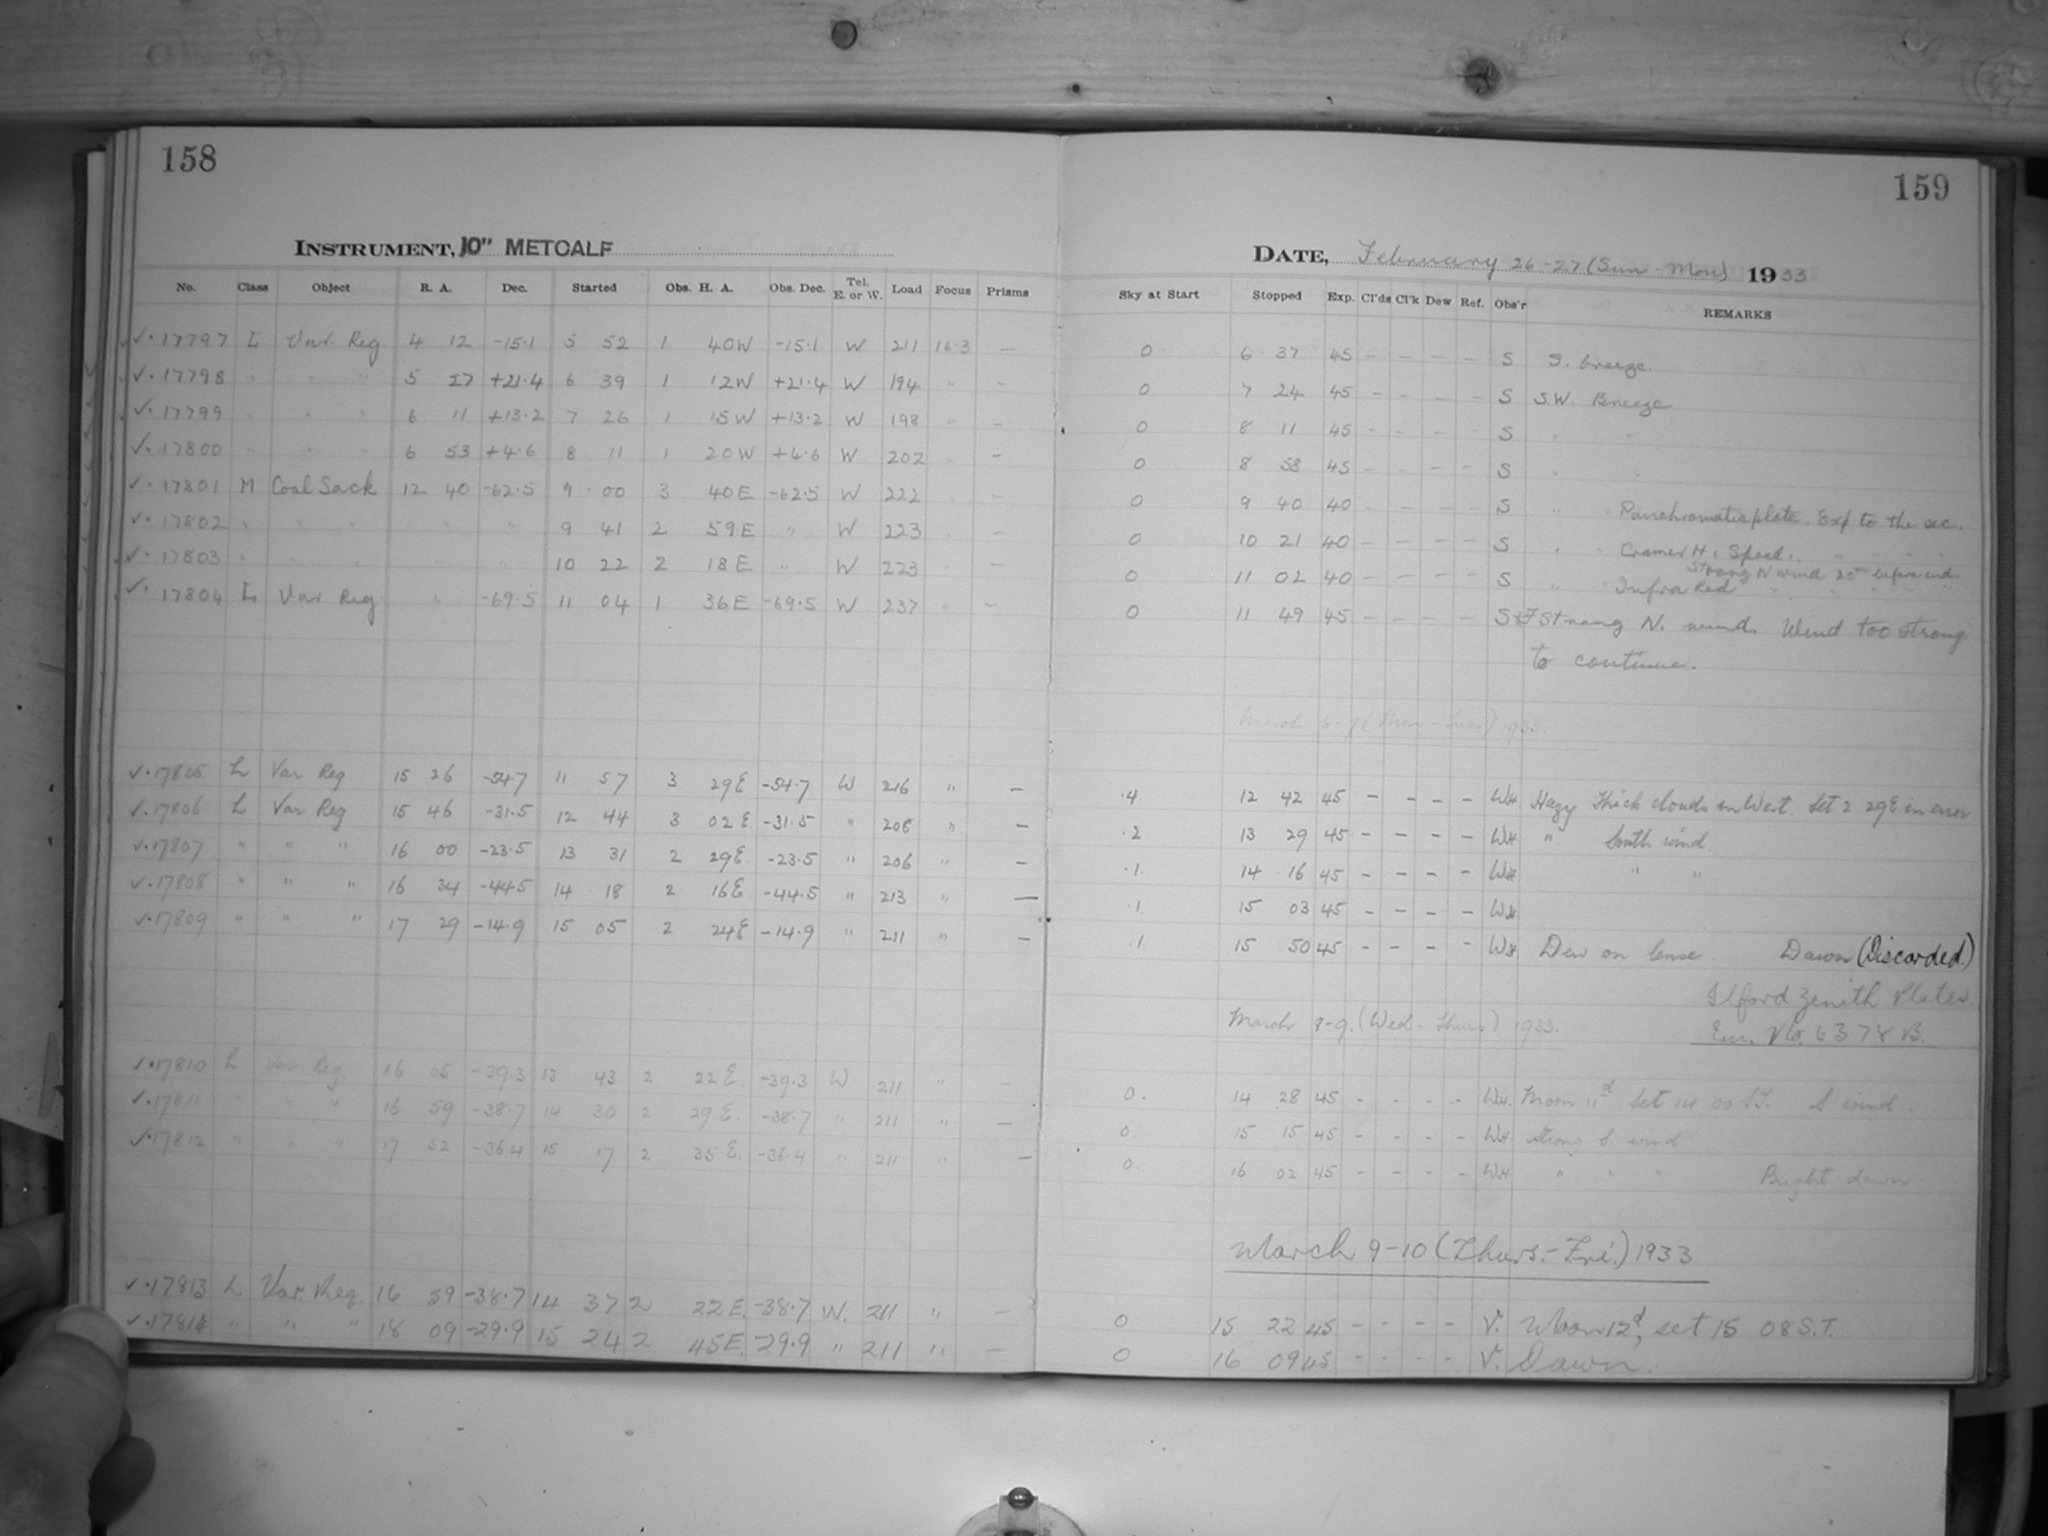 158
INSTRUMENT, 10" METCALF
No. Class Object R. A. Dec. Started Obs. H. A. Obs. Dec. Tel. E. or W. Load Focus Prisms
✓. 17797 L Var. Reg. 4 12 -15.1 5 52 1 40W -15.1 W 211 16.3 —
✓. 17798 " " " 5 27 +21.4 6 39 1 12W +21.4 W 194 " -
✓. 17799 " " " 6 11 +13.2 7 26 1 15W +13.2 W 198 " -
✓. 17800 " " " 6 53 +4.6 8 11 1 20W +4.6 W 202 " -
✓. 17801 M Coal Sack 12 40 -62.5 9 00 3 40E -62.5 W 222 " -
✓. 17802 " " " " " 9 41 2 59E " W 223 " -
✓. 17803 " " " " " 10 22 2 18E " W 223 " -
✓. 17804 L Var Reg " -69.5 11 04 1 36E -69.5 W 237 " —
✓. 17805 L Var Reg 15 26 -54.7 11 57 3 29E -54.7 W 216 " —
✓. 17806 L Var Reg 15 46 -31.5 12 44 3 02E -31.5 " 208 " —
✓. 17807 " " " 16 00 -23.5 13 31 2 29E -23.5 " 206 " —
✓. 17808 " " " 16 34 -44.5 14 18 2 16E -44.5 " 213 " —
✓. 17809 " " " 17 29 -14.9 15 05 2 24E -14.9 " 211 " —
✓. 17810 L Var Reg. 16 05 -39.3 13 43 2 22E. -39.3 W 211 " —
✓. 17811 " " " 16 59 -38.7 14 30 2 29E. -38.7 " 211 " —
✓. 17812 " " " 17 52 -36.4 15 17 2 35E. -36.4 " 211 " —
✓. 17813 L Var. Reg. 16 59 -38.7 14 37 2 22E. -38.7 W. 211 " —
✓. 17814 " " " 18 09 -29.9 15 24 2 45E. -29.9 " 211 " —
159
DATE, February 26-27 (Sun-Mon) 1933
Sky at Start Stopped Exp. Cl'ds Cl'k Dew Ref. Obs'r REMARKS
0 6 37 45 - - - - S S. breeze.
0 7 24 45 - - - - S S.W. Breeze
0 8 11 45 - - - - S " "
0 8 58 45 - - - - S " "
0 9 40 40 - - - - S " " Panchromatic plate. Exp to the sec.
0 10 21 40 - - - - S " " Cramer Hi Speed. " " " "
Strong N wind 20m before end
0 11 02 40 - - - - S " " Infra Red " " " "
0 11 49 45 - - - - S+F Strong N. wind. Wind too strong
to continue.
March 6-7 (Mon-Tues) 1933.
.4 12 42 45 - - - - WH Hazy Thick clouds in West. Set 2 29E in error
.2 13 29 45 - - - - WH " South wind.
.1 14 16 45 - - - - WH " "
.1 15 03 45 - - - - WH
.1 15 50 45 - - - - WH Dew on lense Dawn (Discarded.)
Ilford Zenith Plates
Em. No. 6378 B.
March 8-9. (Wed-Thurs) 1933.
0. 14 28 45 - - - - WH. Moon 11d set 14 00 S.T. S wind.
0. 15 15 45 - - - - WH Strong S. wind
0. 16 02 45 - - - - WH " " " Bright dawn.
March 9-10 (Thurs.-Fri.) 1933
0 15 22 45 - - - - V. Moon 12d, set 15 08 S.T.
0 16 09 45 - - - - V. Dawn.